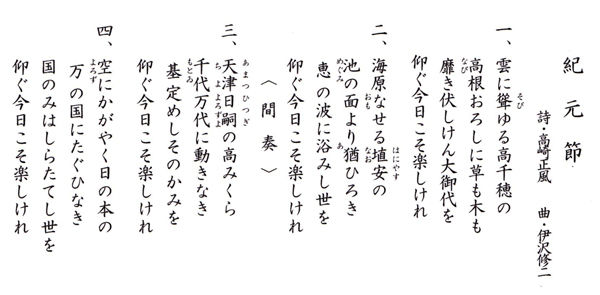 紀元節
詩・高崎正風　曲・伊沢修二
一、雲に聳ゆる高千穂の
高根おろしに草も木も
靡き伏しけん大御代を
仰ぐ今日こそ楽しけれ
二、海原なせる埴安の
池の面より猶ひろき
恵の波に浴みし世を
仰ぐ今日こそ楽しけれ
〈間奏〉
三、天津日嗣の高みくら
千代万代に動きなき
基定めしそのかみを
仰ぐ今日こそ楽しけれ
四、空にかがやく日の本の
万の国にたぐひなき
国のみはしらたてし世を
仰ぐ今日こそ楽しけれ